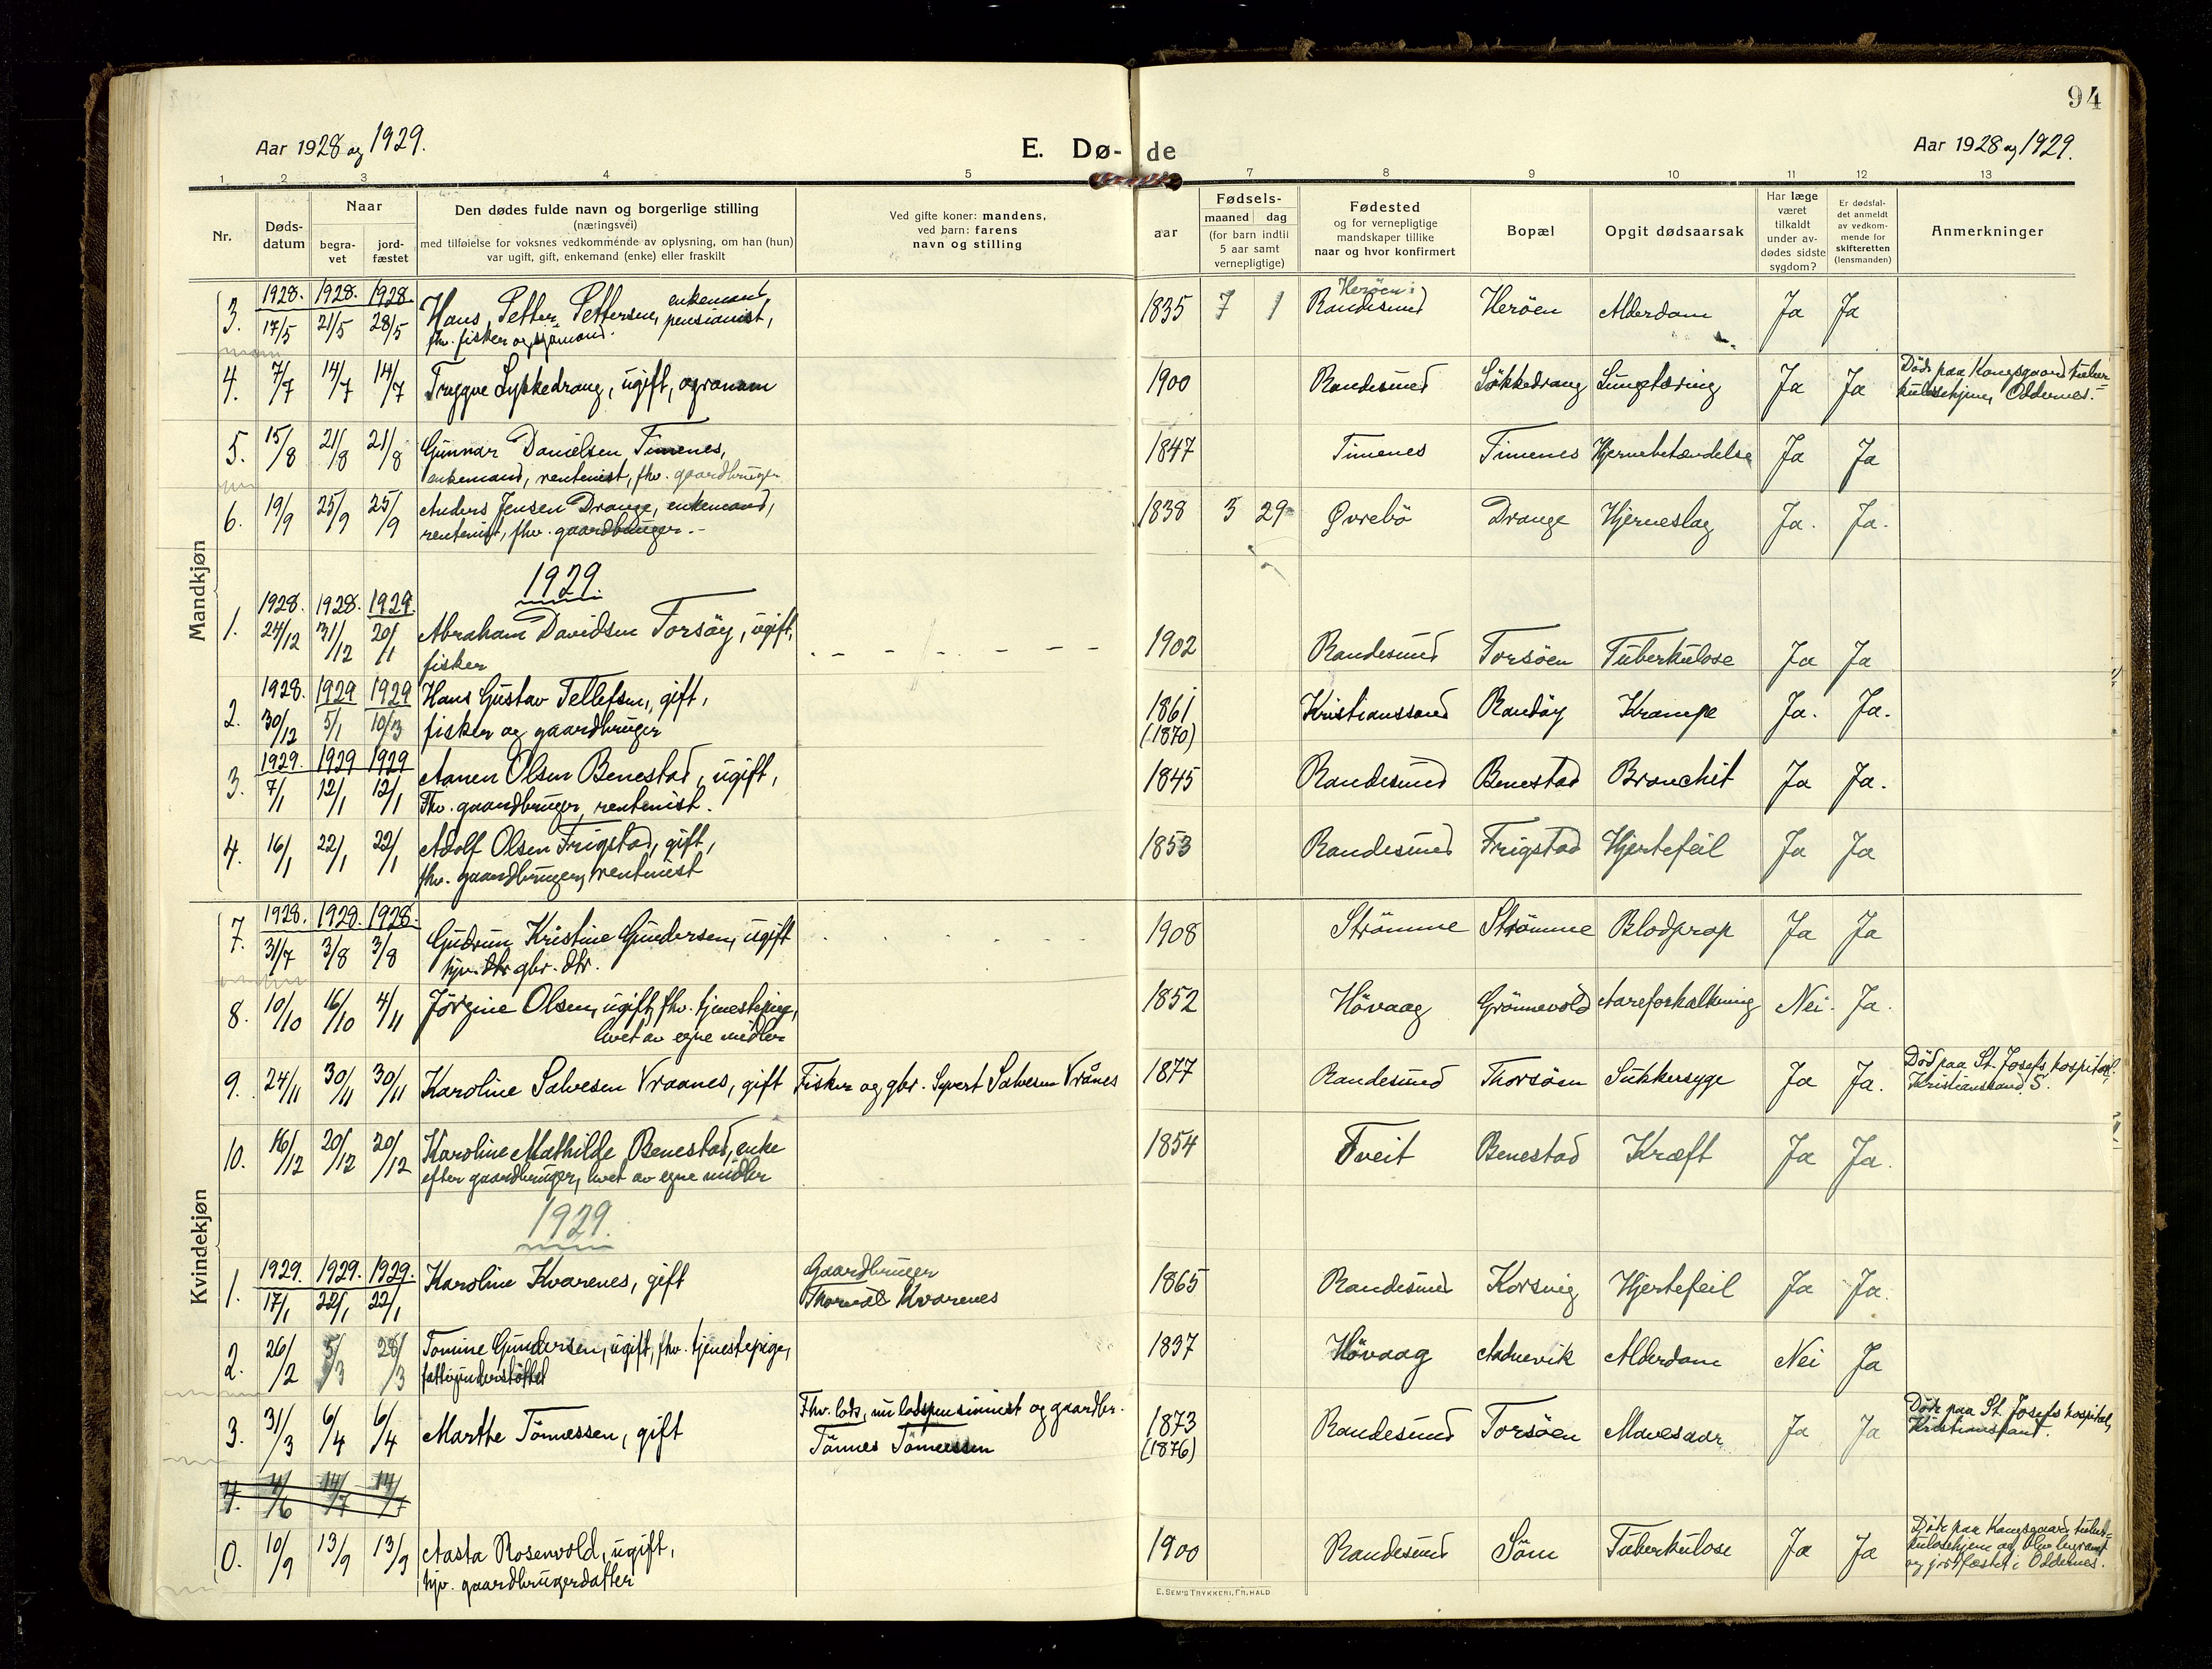 94
Aar 1928 og 1929.
E. Dø- de
Aar 1928 og 1929.
1 2 3 4 5 7 8 9 10 11 12 13
Nr.
Døds-
datum
Naar
begra-
vet
jord-
fæstet
Den dødes fulde navn og borgerlige stilling
(næringsvei)
med tilføielse for voksnes vedkommende av oplysning, om han (hun)
var ugift, gift, enkemand (enke) eller fraskilt
Ved gifte koner: mandens,
ved barn: farens
navn og stilling
Fødsels-
aar
maaned dag
(for barn indtil
5 aar samt
vernepligtige)
Fødested
og for vernepligtige
mandskaper tillike
naar og hvor konfirmert
Bopæl
Opgit dødsaarsak
Har læge
været
tilkaldt
under av-
dødes sidste
sygdom?
Er dødsfal-
det anmeldt
av vedkom-
mende for
skifteretten
(lensmanden)
Anmerkninger
Mandkjøn
1928. 1928. 1928. enkemand, Herøen:
3. 17/5 21/5 28/5 Hans Petter Pettersen, pensionist, 1835 7 1 Randesund Herøen Alderdom Ja Ja
fhv. fisker og sjømand.
4. 7/7 14/7 14/7 Trygve Lykkedrang, ugift, agronom 1900 Randesund Lykkedrang Lungetæring Ja Ja Døde paa Kongsgaard tuber-
kulosehjem, Oddernes.
5. 15/8 21/8 21/8 Gunnar Danielsen Timenes, 1847 Timenes Timenes Hjernebetændelse Ja Ja
enkemand, rentenist, fhv. gaardbruger
6. 19/9 25/9 25/9 Anders Jensen Drange, enkemand, 1838 3 29 Øvrebø Drange Hjerneslag Ja. Ja.
rentenist, fhv. gaardbruger.
1929.
1928. 1928. 1929.
1. 24/12 31/12 20/1 Abraham Davidsen Torsøy, ugift, 1902 Randesund Torsøen Tuberkulose Ja Ja
fisker
1928. 1929 1929
2. 30/12 5/1 10/3 Hans Gustav Tellefsen, gift, 1861 Kristianssand Randøy Krampe Ja. Ja.
fisker og gaardbruger (1870)
1929. 1929 1929
3. 7/1 12/1 12/1 Aanen Olsen Benestad, ugift, 1845 Randesund Benestad Bronchit Ja Ja.
Fhv. gaardbruger, rentenist.
4. 16/1 22/1 22/1 Adolf Olsen Frigstad, gift, 1853 Randesund Frigstad Hjertefeil Ja Ja
fhv. gaardbruger, rentenist
Kvindekjøn
1928. 1928. 1928.
7. 31/7 3/8 3/8 Gudrun Kristine Gundersen, ugift 1908 Strømme Strømme Blodprop Ja Ja
hjv. gbr. dtr.
8. 10/10 16/10 4/11 Jørgine Olsen, ugift, fhv. tjenestepige, 1852 Høvaag Grønnevold Aareforkalkning Nei. Ja.
levet av egne midler
9. 24/11 30/11 30/11 Karoline Salvesen Vraanes, gift Fisker og gbr. Syvert Salvesen Vrånes 1877 Randesund Thorsøen Sukkersyge Ja Ja. Død paa St. Josefs hospital,
Kristianssand S.
10. 16/12 20/12 20/12 Karoline Mathilde Benestad, enke 1854 Tveit Benestad Kræft Ja Ja.
efter gaardbruger, levet av egne midler
1929.
1929. 1929. 1929.
1. 17/1 22/1 22/1 Karoline Kvarenes, gift Gaardbruger 1865 Randesund Korsvig Hjertefeil Ja Ja.
Thorvald Kvarenes
2. 26/2 5/3 28/3 Tomine Gundersen, ugift, fhv. tjenestepige, 1837 Høvaag Aadnevik Alderdom Nei Ja
fattigunderstøttet
3. 31/3 6/4 6/4 Marthe Tønnessen, gift Fhv. lods, nu lodspensionist og gaardbr. 1873 Randesund Torsøen Mavesaar Ja Ja Døde paa St. Josefs hospital,
Tønnes Tønnessen (1876) Kristianssand.
4. 4/6 14/7 14/7
0. 10/9 13/9 13/9 Aasta Rosenvold, ugift, 1900 Randesund Søm Tuberkulose Ja Ja Døde paa Kongsgaard tuber-
hjv. gaardbrugerdatter kulosehjem og blev begravet
og jordfæstet i Oddernes.
E. SEM'S TRYKKERI, FR.HALD